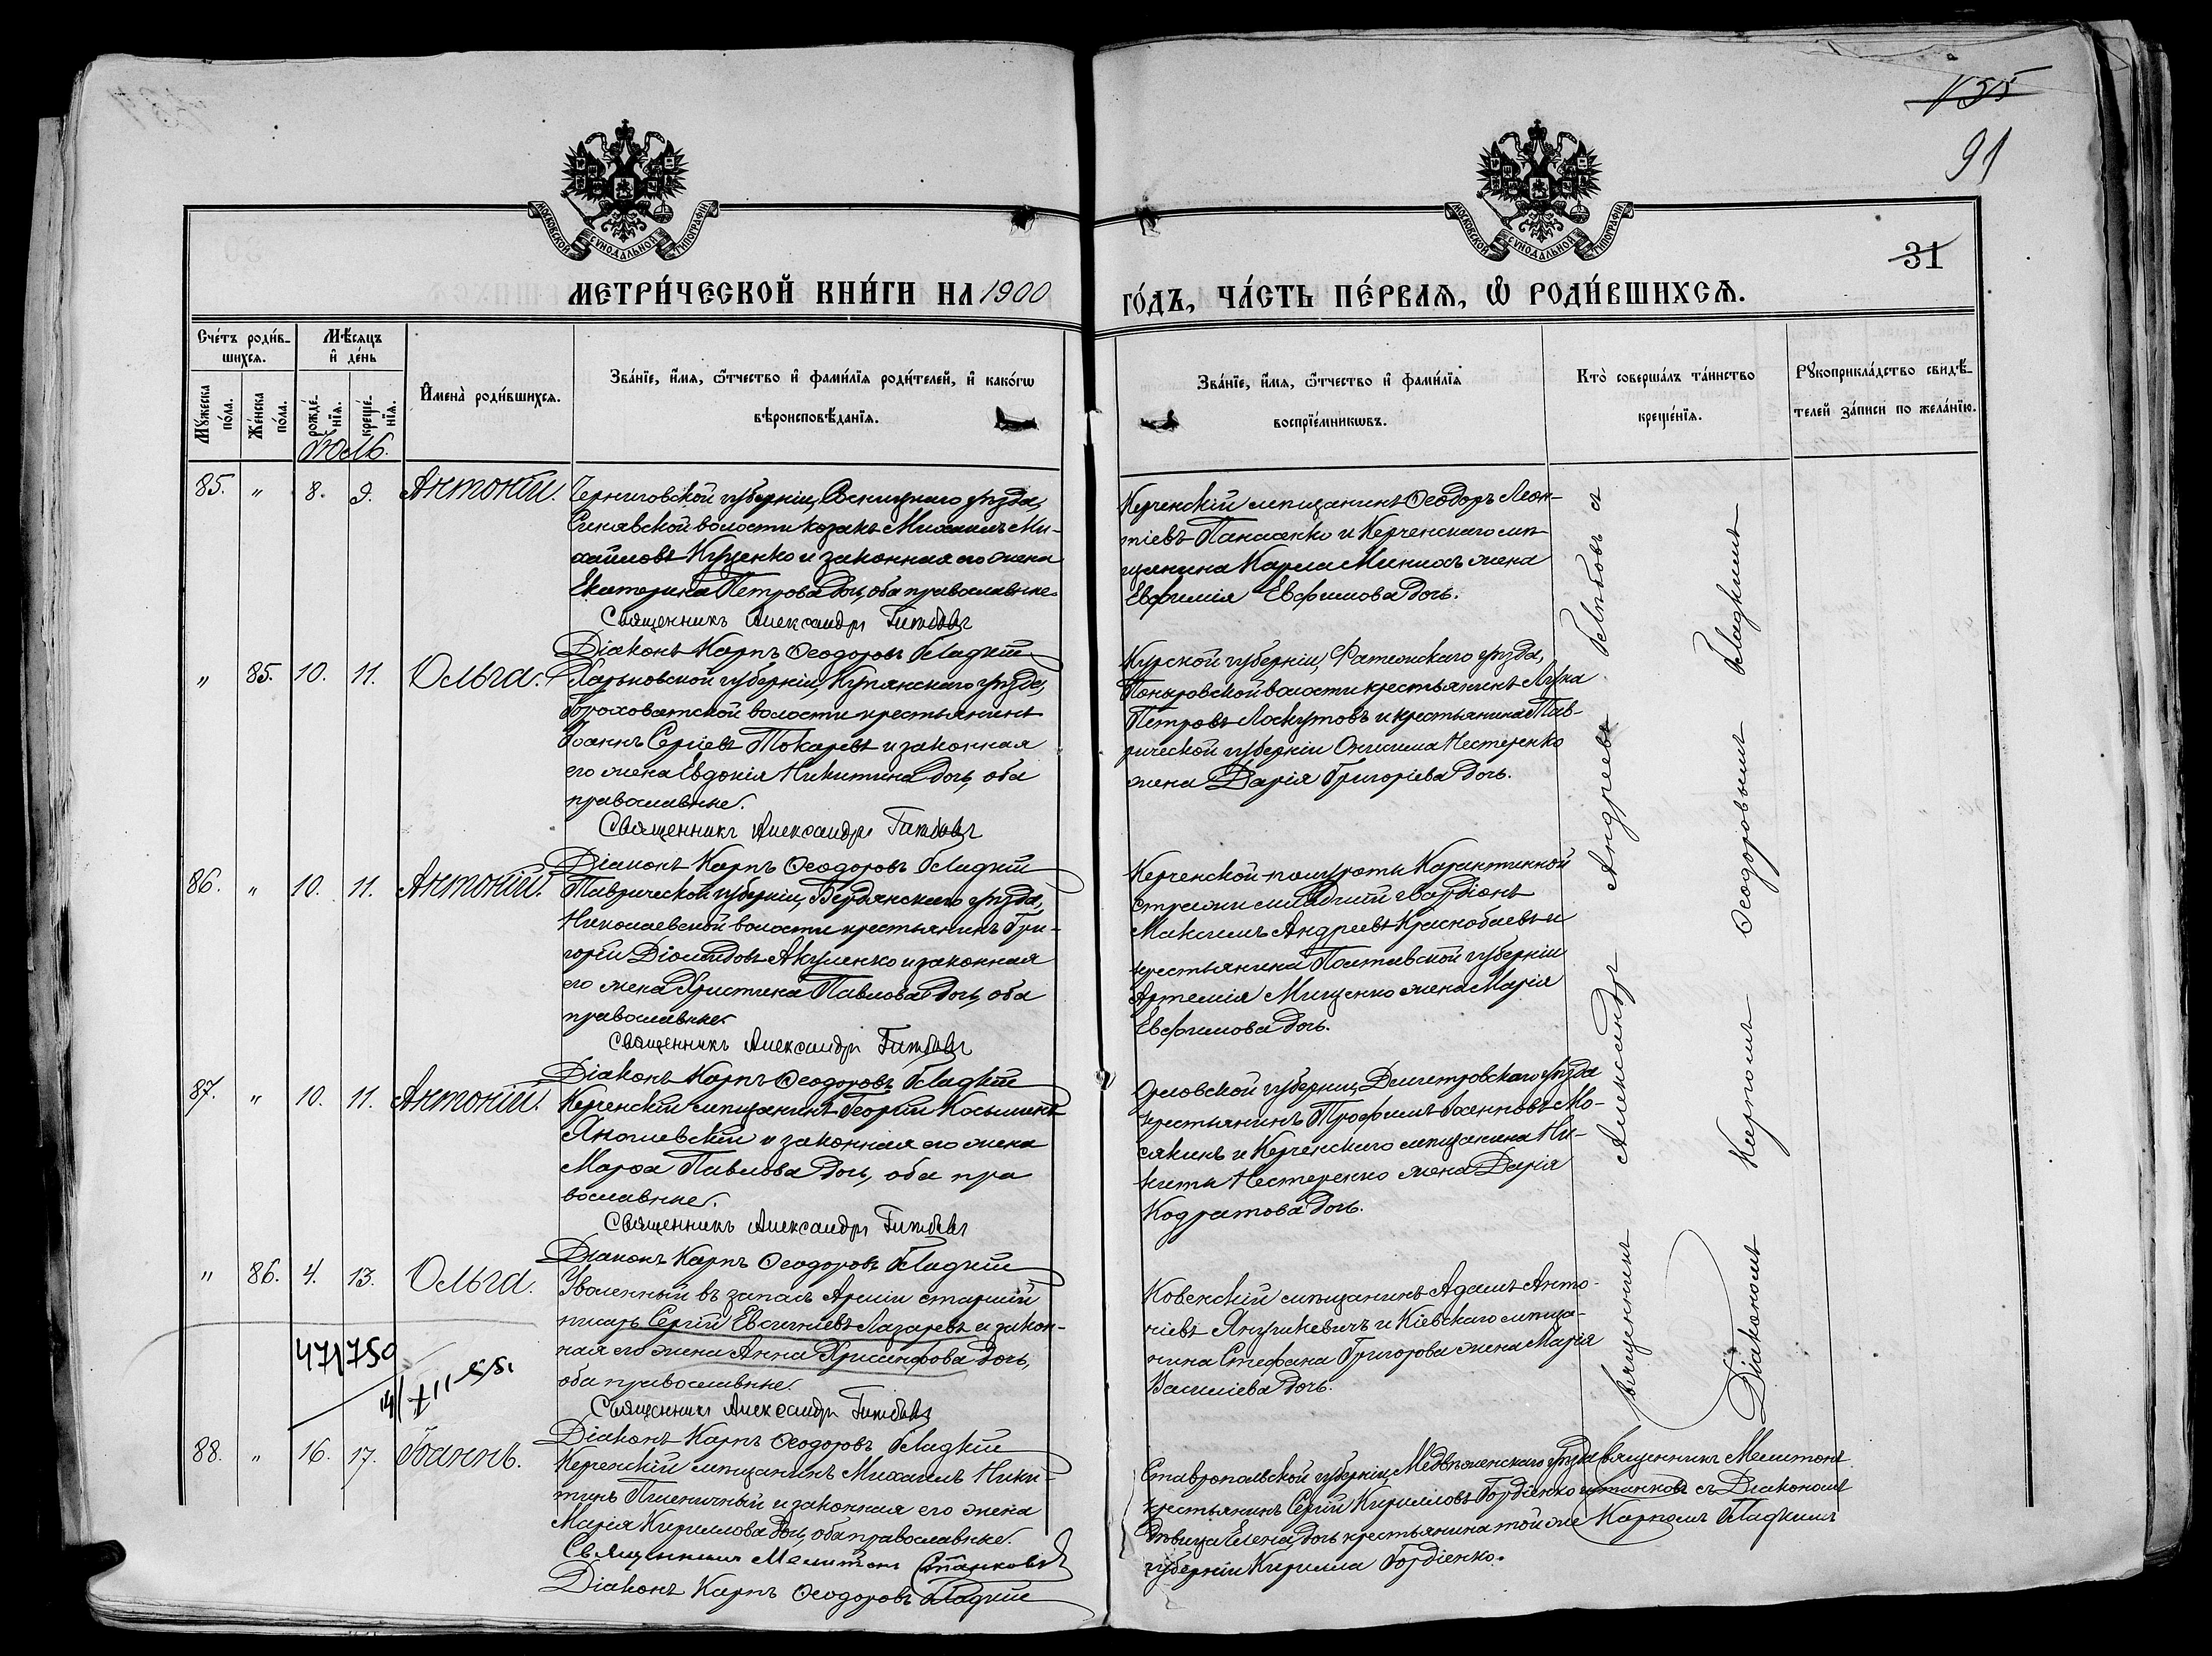 155
91
МОСКОВСКОЙ СѴНОДАЛЬНОЙ ТИПОГРАФІИ
МОСКОВСКОЙ СѴНОДАЛЬНОЙ ТИПОГРАФІИ
31
МЕТРИ́ЧЕСКОЙ КНИ́ГИ НА 1900
ГО́ДЪ, ЧА́СТЬ ПЕ́РВАѦ, Ѽ РОДИ́ВШИХСѦ.
Сче́тъ роди́в-
шихсѧ.
Мѣсѧцъ
и҆ де́нь
И҆мена̀ роди́вшихсѧ.
Зва́нїе, и҆́мѧ, ѻ҆́тчество и҆ фами́лїѧ роди́телей, и҆ како́гѡ
вѣроисповѣ́данїѧ.
Зва́нїе, и҆́мѧ, ѻ҆́тчество и҆ фами́лїѧ
воспрїе́мникѡвъ.
Кто̀ соверша́лъ та́инство
креще́нїѧ.
Рꙋкоприкла́дство свидѣ́-
телей за́писи по жела́нїю.
Мꙋ́жеска
по́ла.
Же́нска
по́ла.
рожде́-
нїѧ.
креще́-
нїѧ.
Іюль.
85. " 8. 9. Антоній.
Черниговской губерніи, Сосницкаго уѣзда,
Синявской волости козакъ Михаилъ Ми-
хайловъ Куценко и законная его жена
Екатерина Петрова дочь, оба православные.
Священникъ Александръ
Діаконъ Карпъ Ѳеодоровъ Гладкій
Керченскій мѣщанинъ Ѳеодоръ Леон-
тіевъ Панасенко и Керченскаго мѣ-
щанина Карла жена
Евфимія Евфимова дочь.
" 85. 10. 11. Ольга.
Харьковской губерніи, Купянскаго уѣзда,
Гороховатской волости крестьянинъ
Іоаннъ Сергіевъ Токаревъ и законная
его жена Евдокія Никитина дочь, оба
православные.
Священникъ Александръ
Діаконъ Карпъ Ѳеодоровъ Гладкій
Курской губерніи, Фатежскаго уѣзда,
Поныровской волости крестьянинъ Лука
Петровъ Лоскутовъ и крестьянина Тав-
рической губерніи Онисима Нестеренко
жена Дарія Григоріева дочь.
86. " 10. 11. Антоній.
Таврической губерніи, Бердянскаго уѣзда,
Николаевской волости крестьянинъ Гри-
горій Діомидовъ Акуленко и законная
его жена Христина Павлова дочь, оба
православные.
Священникъ Александръ
Діаконъ Карпъ Ѳеодоровъ Гладкій
Керченской полуроты Карантинной
стражи младшій гвардіонъ
Максимъ Андреевъ Краснобаевъ и
крестьянина Полтавской губерніи
Артемія Мищенко жена Марія
Евфимова дочь.
87. " 10. 11. Антоній.
Керченскій мѣщанинъ Георгій Косьминъ
и законная его жена
Марѳа Павлова дочь, оба пра
вославные.
Священникъ Александръ
Діаконъ Карпъ Ѳеодоровъ Гладкій
Орловской губерніи, Дмитровскаго уѣзда
крестьянинъ Трофимъ Іоанновъ Мо-
сякинъ и Керченскаго мѣщанина Ни-
киты Нестеренко жена Дарія
Кодратова дочь.
" 86. 4. 13. Ольга.
Уволенный въ запасъ Арміи старшій
писарь Сергій Евсигніевъ Лазаревъ и закон-
ная его жена Анна Хрисанфова дочь,
оба православные.
Священникъ Александръ
Діаконъ Карпъ Ѳеодоровъ Гладкій
Ковенскій мѣщанинъ Адамъ Анто-
ніевъ Янушкевичъ и Кіевскаго мѣща-
нина Стефана Григорова жена Марія
Василіева дочь.
88. " 16. 17. Іоаннъ.
Керченскій мѣщанинъ Михаилъ Ники-
тинъ Пшеничный и законная его жена
Марія Кириллова дочь, оба православные.
Священникъ Мелитонъ Станковъ
Діаконъ Карпъ Ѳеодоровъ Гладкій
Ставропольской губерніи, Медвѣженскаго уѣзда
крестьянинъ Сергій Кирилловъ Гордіенко и
дѣвица Елена, дочь крестьянина той же
губерніи Кирилла Гордіенко.
Священникъ Александръ Андреевъ съ
Діакономъ Карпомъ Ѳеодоровымъ Гладкимъ
Священникъ Мелитонъ
Станковъ съ Діакономъ
Карпомъ Гладкимъ